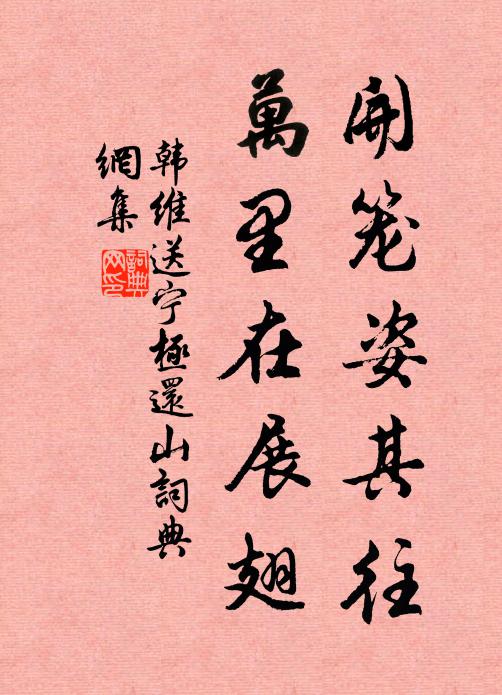 開笼姿其往
萬里在展翅
韩維送宁極還山詞典
網集
詞典
网印